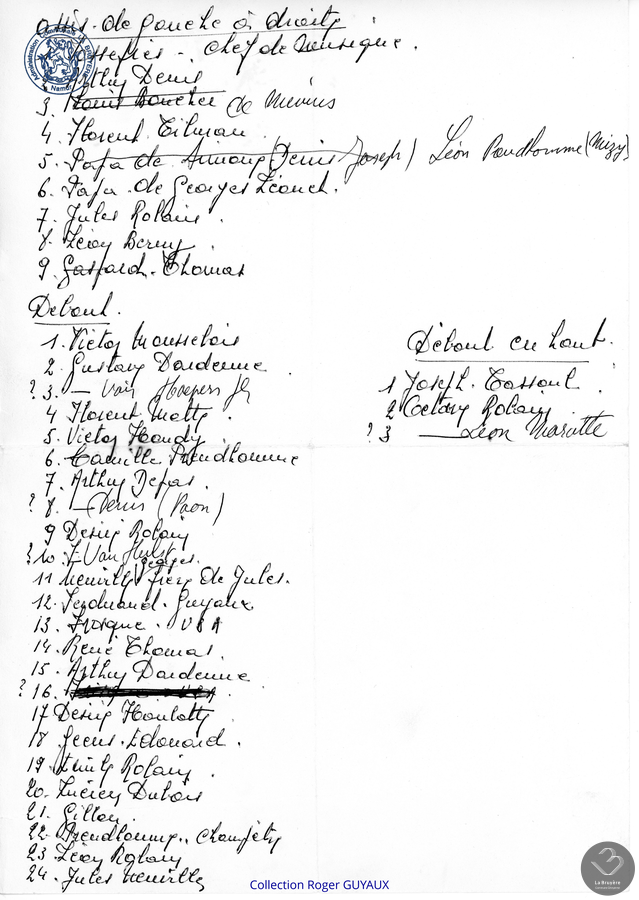 assis - de gauche à droite
- Chef de musique.
Arthur Denis
3. Louis Boucher de Mévius
4. Florent Tilman
5. Papa de Simong (Denis Joseph) Léon Prudhomme (Mizy)
6. Papa de Georges Léonet.
7. Jules Rolain.
8. Léon Berny.
9. Gaspard. Thomas
Debout.
1. Victor Mousselois
2. Gustave Dardenne
? 3. — Van
4 Florent Motte
5. Victor Houdy
6. Camille Prudhomme
7. Arthur Defas.
? 8. — Denis (Paon)
9 Désiré Rolain
? 10. Van Hulst
Georges.
11 frère de Jules.
12. Ferdinand. Guyaux
13. USA
14. René Thomas.
15. Arthur Dardenne
? 16.
17 Désiré Houlotte
18 Geens. Edouard.
19. Emile Rolain.
20. Lucien Dubois
21. Gillon.
22. Prudhomme.
23. Léon Rolain
24. Jules
Debout en haut.
1 Joseph. Tassoul
2 Octave Rolain
? 3 — Léon Marotte
Administration Communale La Bruyère
Namur
La Bruyère
Collection Roger GUYAUX